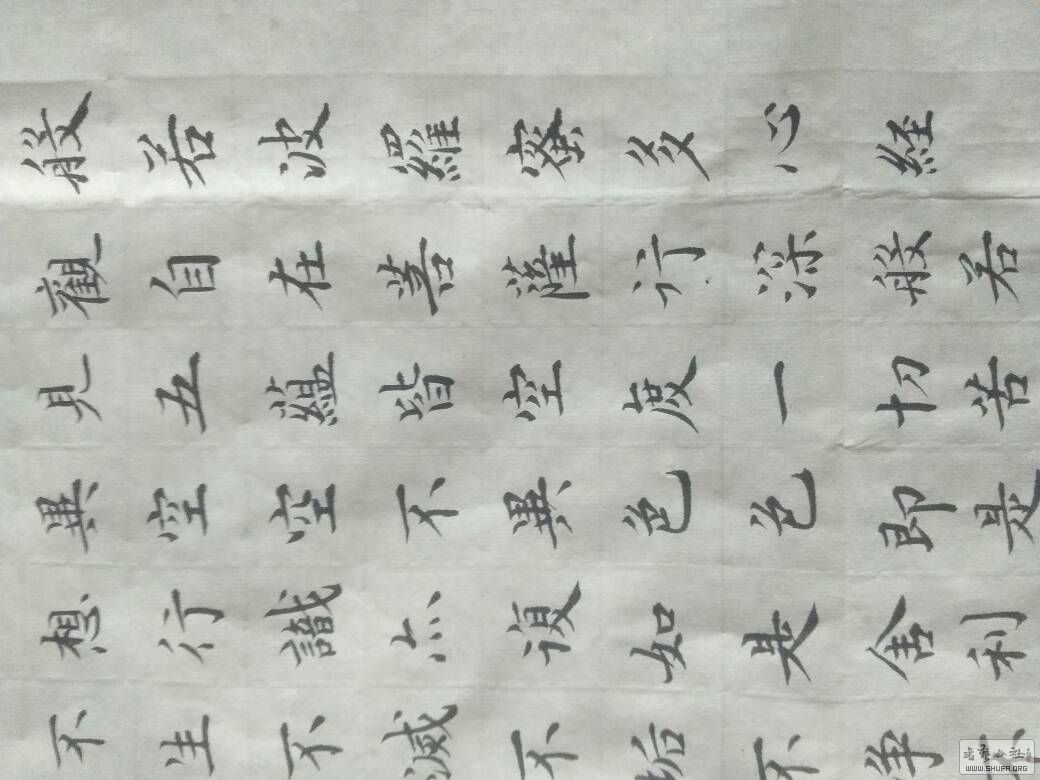 般若波羅蜜多心経
觀自在菩薩行深般若
見五蘊皆空度一切苦
異空空不異色色即是
想行識亦復如是舍利
不生不滅不垢不净
書藝公社
WWW.SHUFA.ORG